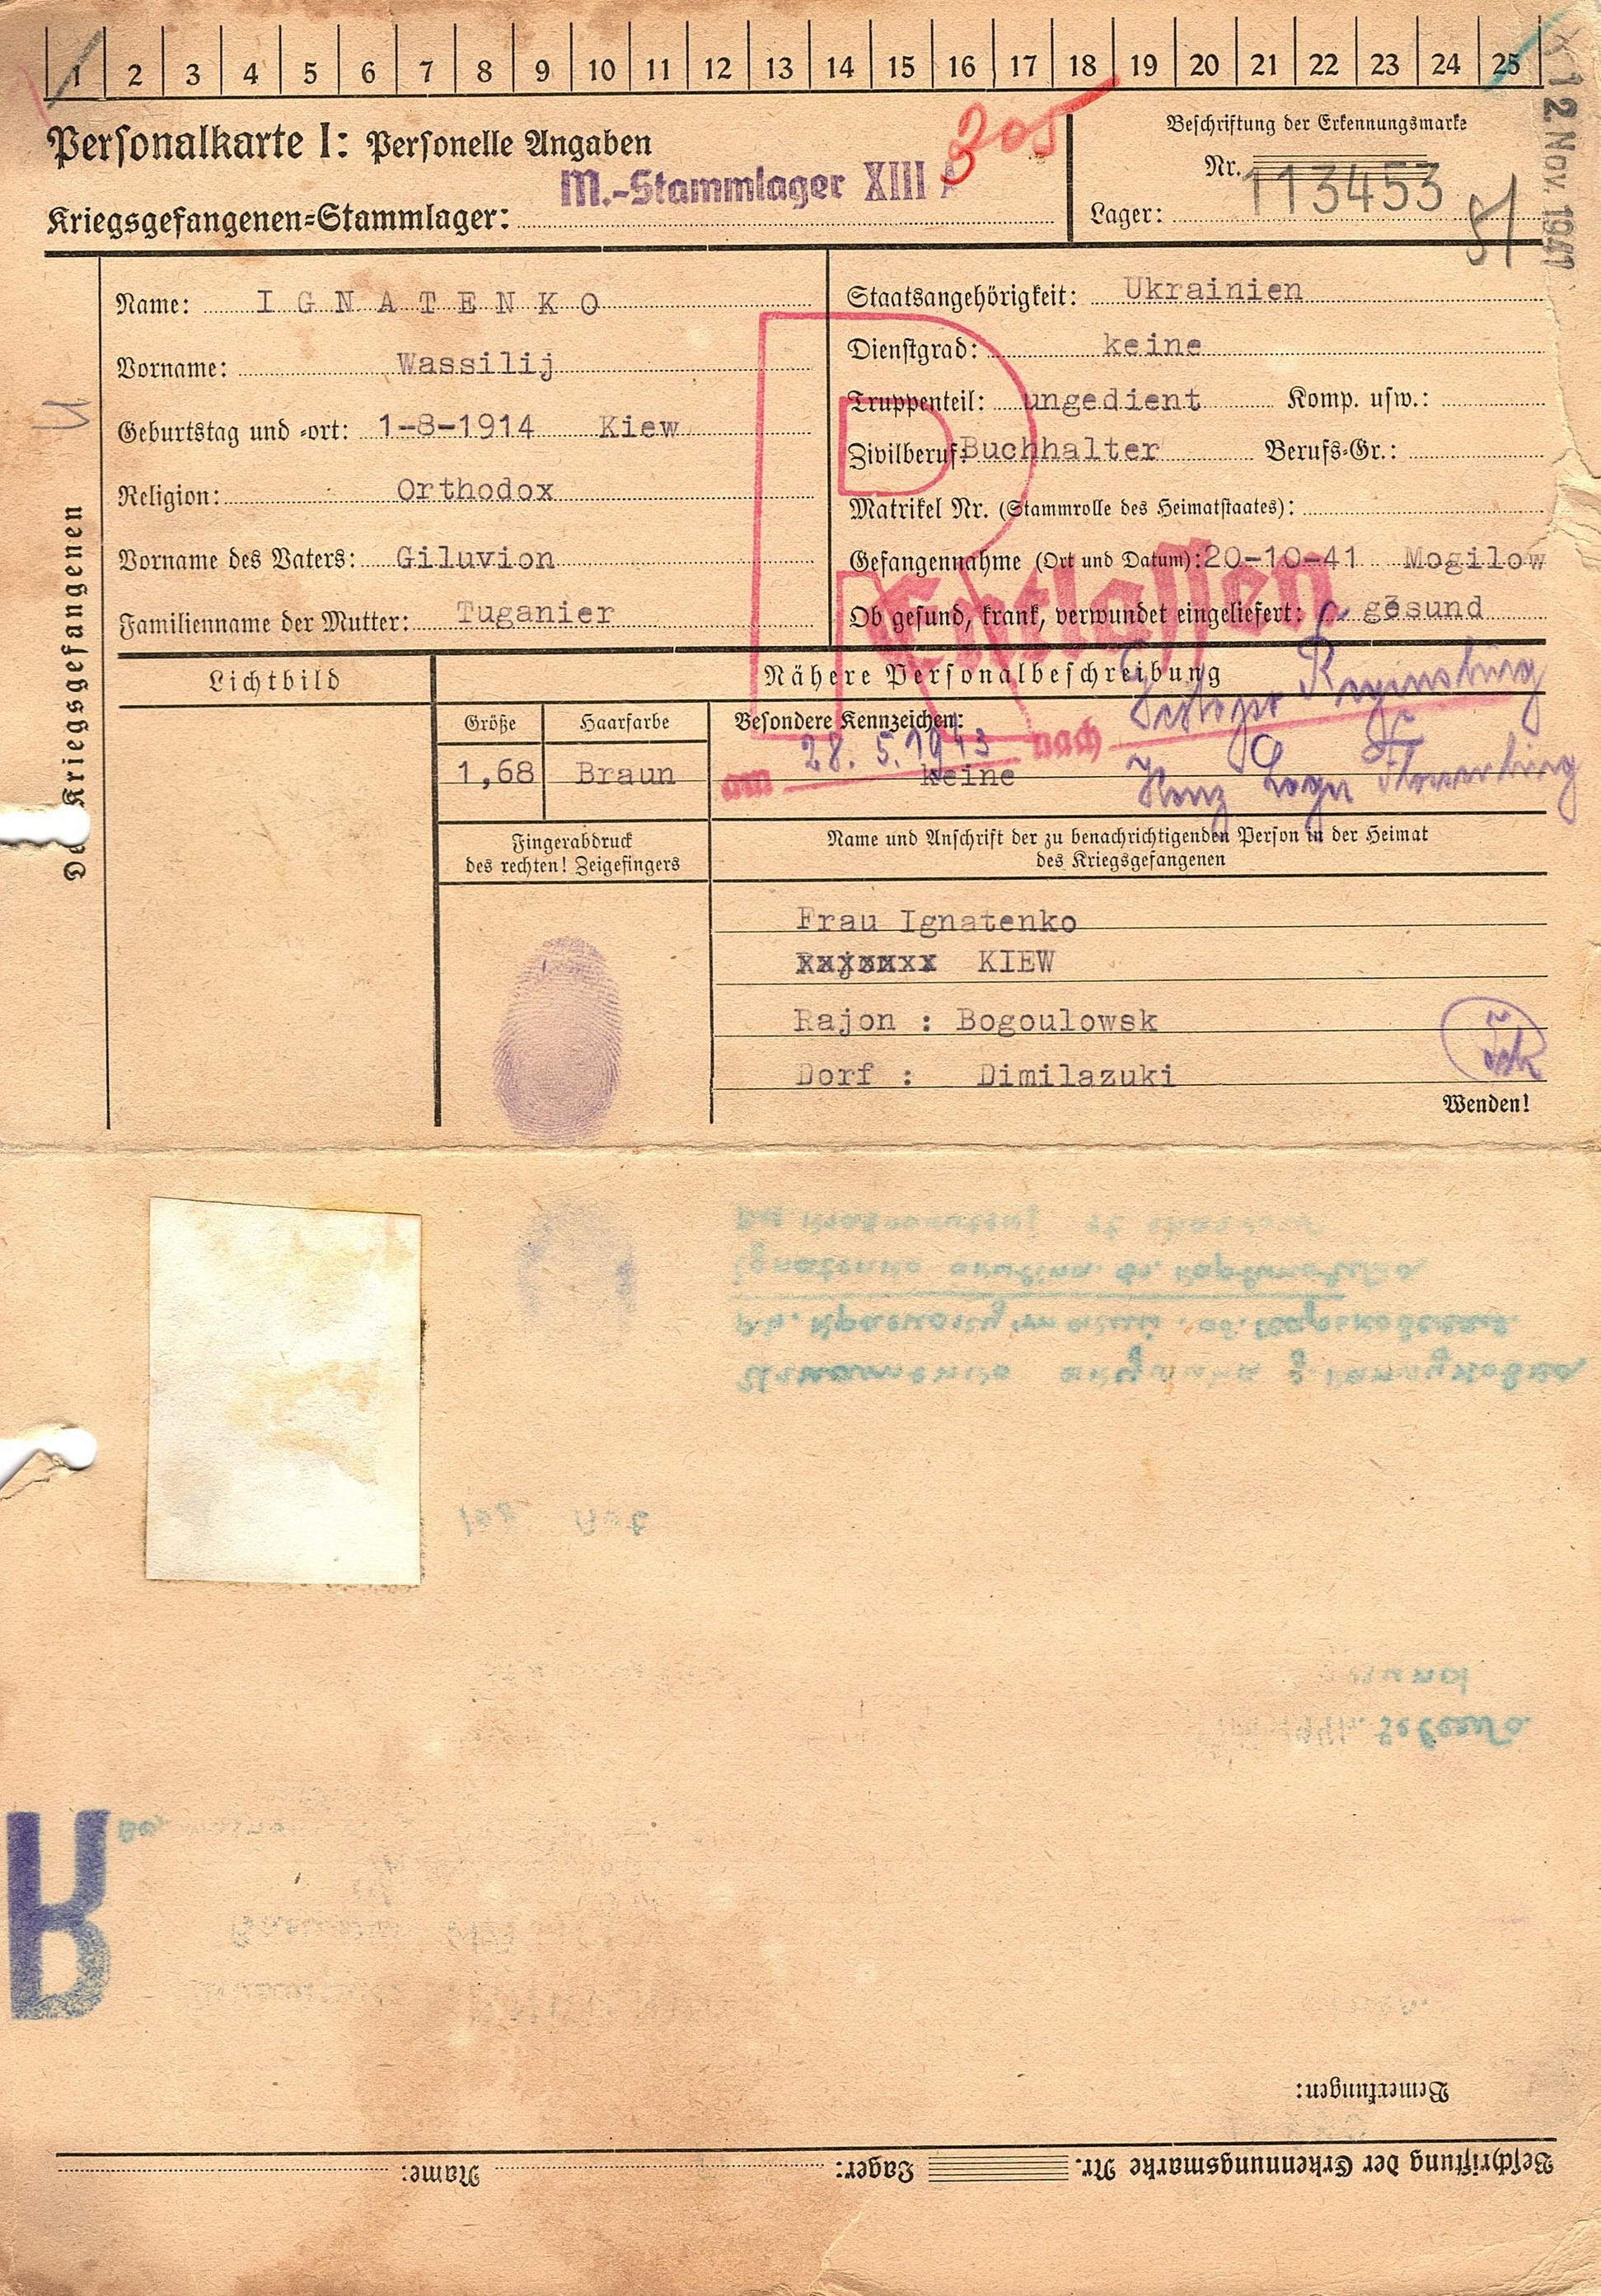 1 2 3 4 5 6 7 8 9 10 11 12 13 14 15 16 17 18 19 20 21 22 23 24 25
12 Nov. 1941
Personalkarte I: Personelle Angaben
305
Beschriftung der Erkennungsmarke
Nr. 113453
M.-Stammlager XIII A
Kriegsgefangenen-Stammlager:
Lager:
Des Kriegsgefangenen
Name: IGNATENKO
Vorname: Wassilij
Geburtstag und -ort: 1-8-1914 Kiew
Religion: Orthodox
Vorname des Vaters: Giluvion
Familienname der Mutter: Tuganier
Staatsangehörigkeit: Ukrainien
Dienstgrad: keine
Truppenteil: ungedient Komp. usw.:
Zivilberuf: Buchhalter Berufs-Gr.:
Matrikel Nr. (Stammrolle des Heimatstaates):
Gefangennahme (Ort und Datum): 20-10-41 Mogilow
Ob gesund, krank, verwundet eingeliefert: gesund
R
Entlassen
am 28. 5. 1943 nach Gestapo Regensburg
Konz Lager Flossenbürg
Lichtbild
Nähere Personalbeschreibung
Größe Haarfarbe Besondere Kennzeichen:
1,68 Braun keine
Fingerabdruck
des rechten! Zeigefingers
Name und Anschrift der zu benachrichtigenden Person in der Heimat
des Kriegsgefangenen
Frau Ignatenko
KIEW
Rajon : Bogoulowsk
Dorf : Dimilazuki
Wenden!
R
Bemerkungen:
Beschriftung der Erkennungsmarke Nr. Lager: Name: